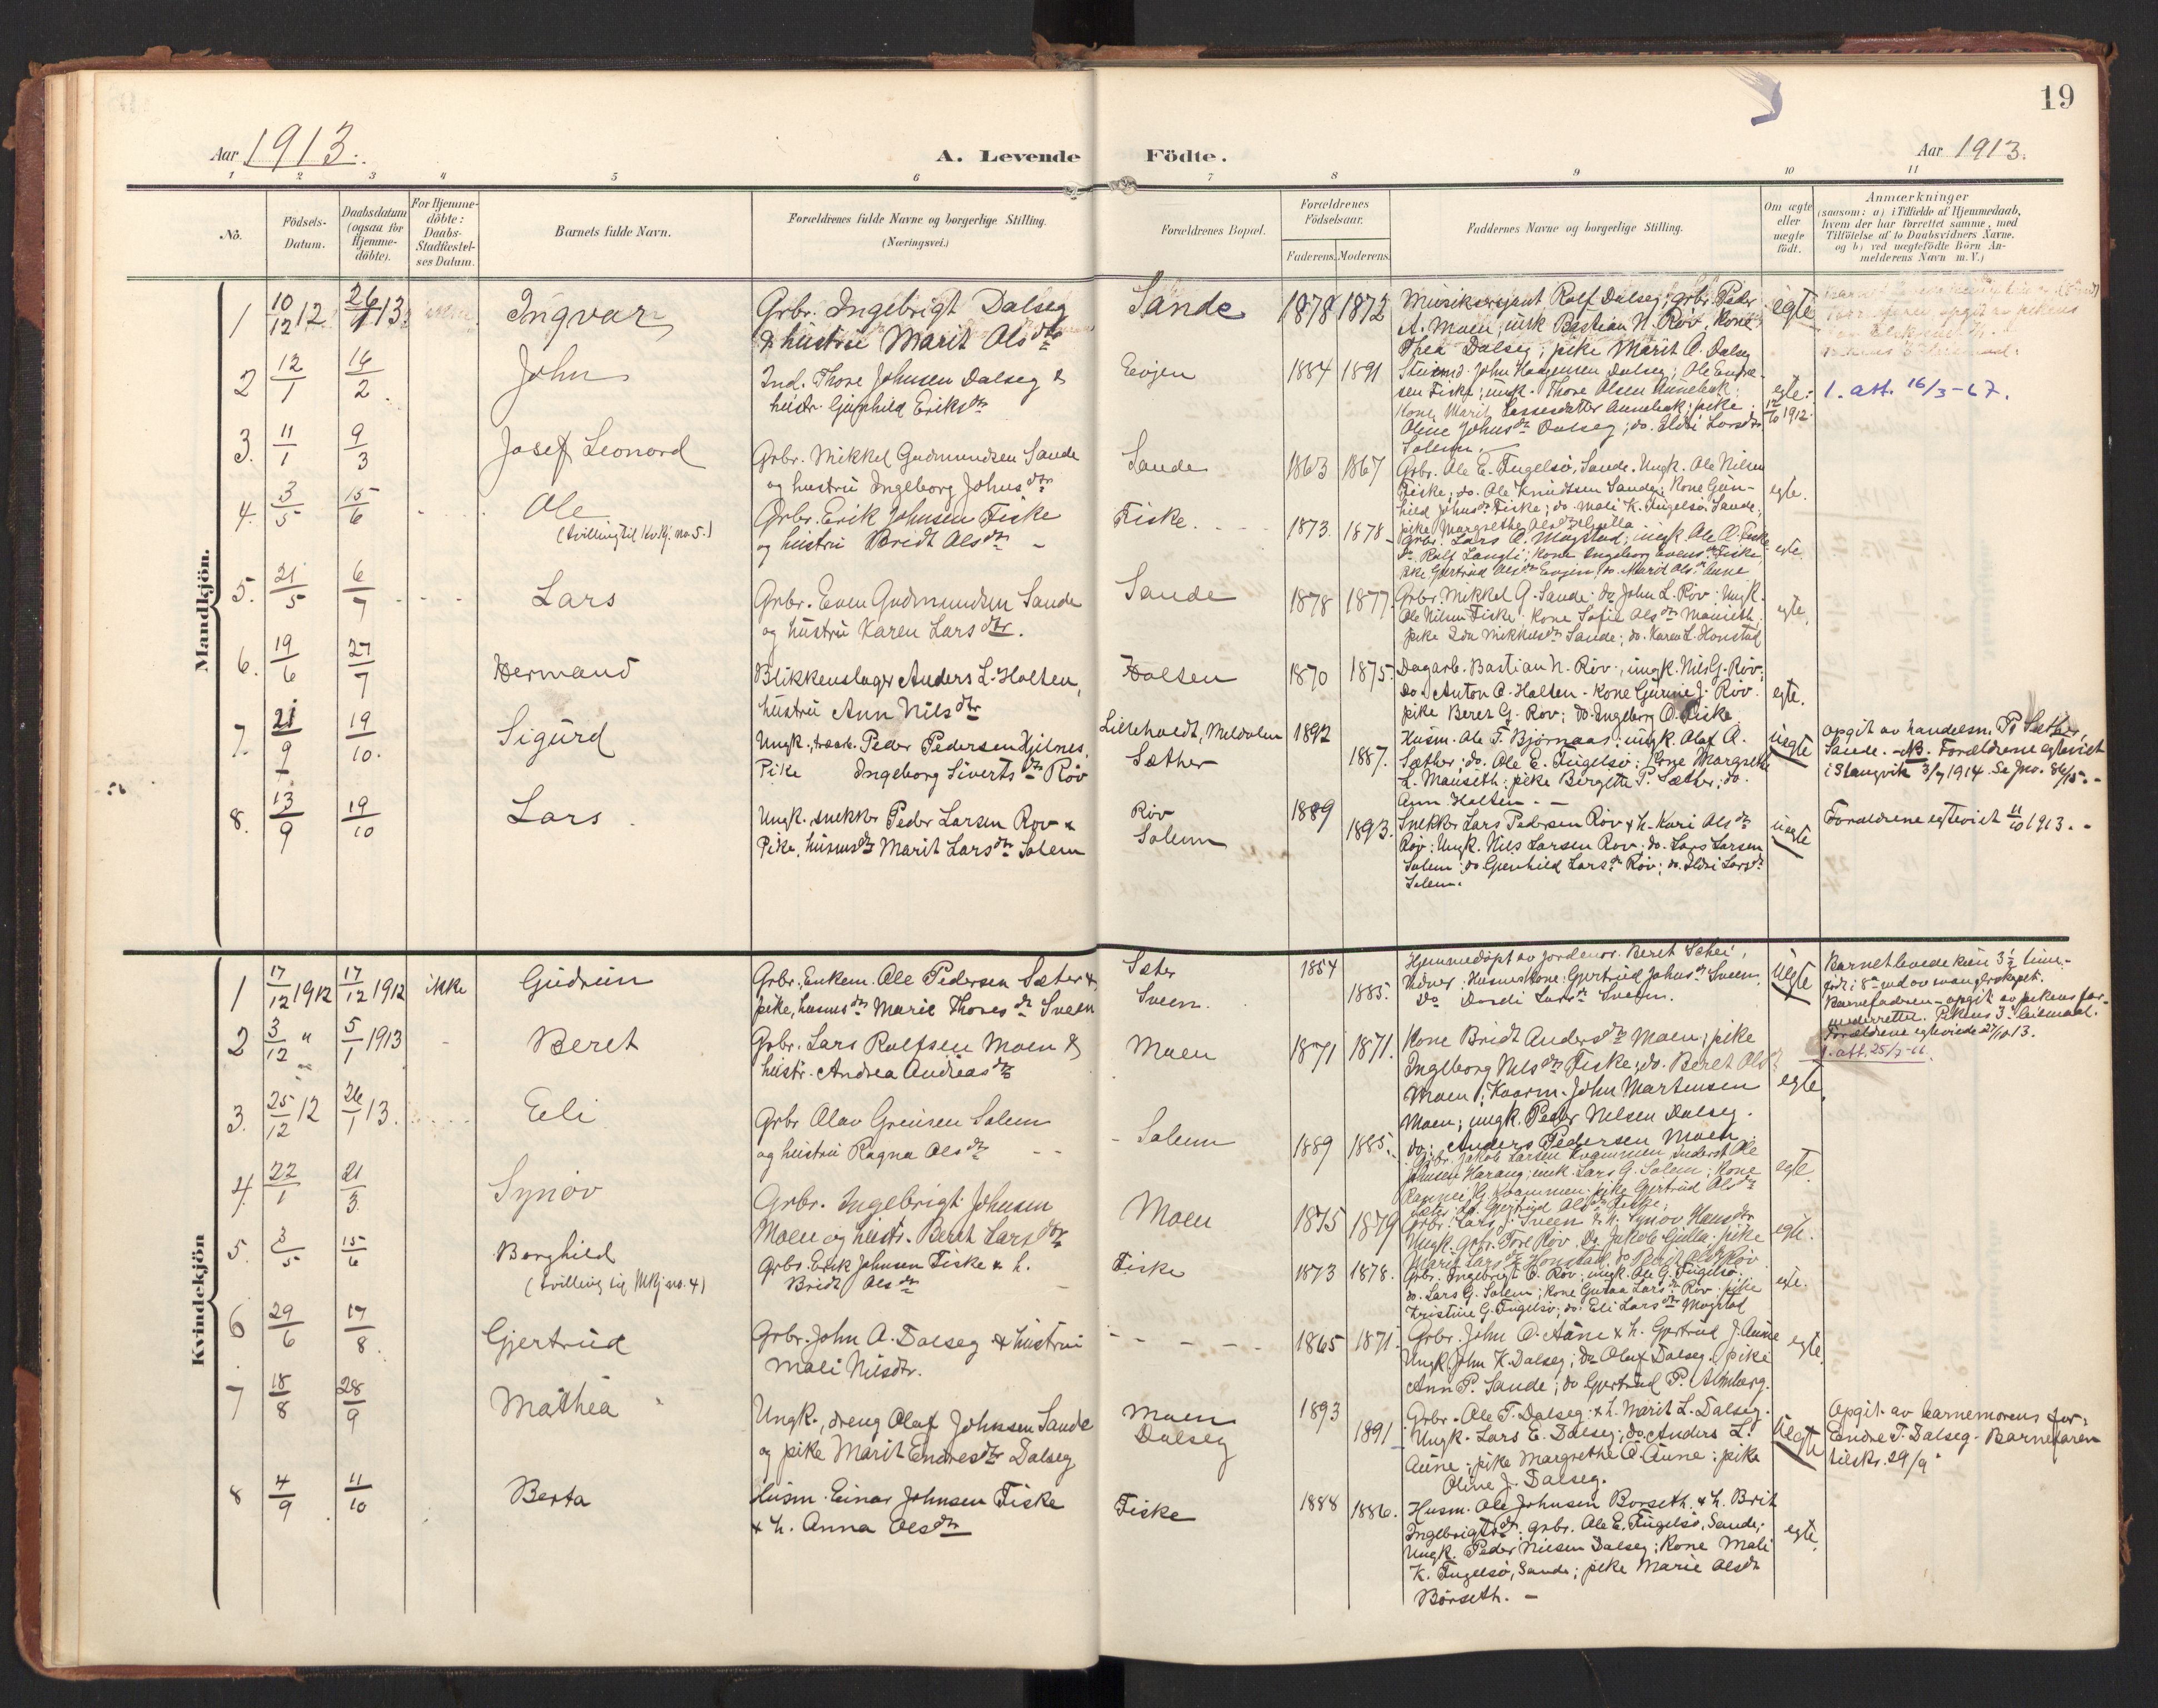 19
Aar 1913.
A. Levende Födte.
Aar 1913.
1 2 3 4 5 6 7 8 9 10 11
No.
Födsels-Datum.
Daabsdatum (ogsaa for Hjemme-döbte).
For Hjemme-döbte: Daabs-Stadfæstel-ses Datum.
Barnets fulde Navn.
Forældrenes fulde Navne og borgerlige Stilling.
(Næringsvei.)
Forældrenes Bopæl.
Forældrenes Födselsaar.
Faderens. Moderens.
Faddernes Navne og borgerlige Stilling.
Om ægte eller uægte födt.
Anmærkninger
(saasom: a) i Tilfælde af Hjemmedaab, hvem der har forrettet samme, med Tilföielse af to Daabsvidners Navne, og b) ved uægtefödte Börn Anmelderens Navn m. V.)
Mandkjön.
1 10/12 12 26/1 13. Ingvar
Grbr. Ingebrigt Dalseg
& hustru Marit Olsdtr
Sande 1878 1872
Musiksersjant Rolf Dalseg; grbr. Peder
A. Moen; unk Bastian N. Röv, Kone
Thea Dalseg; pike Marit O. Dalseg
egte
2 12/1 16/2. John
Ind. Thore Johnsen Dalseg &
hustr. Gjurhild Eriksdtr
Evjen 1884 1891
John Haagensen Dalseg; Ole
sen Fiske; ungk. Thore Olsen
Kone Marit Lassesdatter; pike
Oline Johnsdtr Dalseg; do. Ildri Larsdtr
Solem.
egte: 1912.
1. att. 16/3-67.
3. 11/1 9/3 Josef Leonord
Grbr. Mikkel Gudmundsen Sande
og hustru Ingeborg Johnsdtr
Sande 1863 1867
Grbr. Ole E. Fugelsö, Sande. Ungk. Ole Nilsen
Fiske; do. Ole Knudtsen Sande; Kone Gun-
hild Johnsdr Fiske; do. Mali K. Fugelsö, Sande,
pike Margrethe Olsdtr Gulla
egte.
4. 3/5 15/6 Ole
(tvilling til Kv.kj. no 5.)
Grbr. Erik Johnsen Fiske
og hustru Bridt Olsdtr
Fiske. 1873. 1878
Grbr. Lars O. Magstad; ungk. Ole O. Fiske
do. Rolf Langli; Kone Ingeborg Fiske
pike Gjertrud Olsdtr Evjen, do. Marit Olsdr Aune
egte.
5. 21/5 6/7 Lars
Grbr. Even Gudmundsen Sande
og hustru Karen Larsdtr.
Sande 1878 1877.
Grbr. Mikkel G. Sande; do John L. Röv; Ungk.
Ole Nilsen Fiske; Kone Sofie Olsdtr
pike Ida Mikkelsdtr Sande; do. Karen L. Honstad
egte.
6. 19/6 27/7 Hermand
Blikkenslager Anders L. Holten,
hustru Ann Nilsdtr
Holten 1870 1875.
Dagarb. Bastian N. Röv; ungk. Nils G. Röv;
do. Anton O. Holten. Kone Gurine J. Röv.
pike Beret G. Röv; do. Ingeborg O. Fiske
egte.
7. 21/9 19/10. Sigurd
Ungk., Peder Pedersen Hjelnes,
Pike Ingeborg Sivertsdtr Röv
Lillehaldt, Meldalen 1892
Sæther 1887.
Husm. Ole T. Björnaas; ungk. Olaf A.
Sæther; do. Ole E. Fugelsö; Kone Margrete
L. Mauseth; pike Bergitte P. Sæther; do.
Ann Holten.
uegte
Opgit av handelsm. P. Sæther,
Sande. - NB. Forældrene egteviet
i Stangvik 3/7 1914. Se Jno. 86/15.
8. 13/9 19/10 Lars.
Ungk. snekker Peder Larsen Röv &
Pike, husmsdtr Marit Larsdtr Solem
Röv 1889
Solem 1893.
Snekker Lars Pedersen Röv & h. Kari Olsdtr
Röv; Ungk. Nils Larsen Röv; do. Lars Larsen
Solem; do Gjurhild Larsdr Röv; do. Ildri Larsdr
Solem.
uegte
Forældrene egteviet 11/10 1913.
Kvindekjön
1 17/12 1912 17/12 1912 ikke Gudrun
Grbr., Enkem. Ole Pedersen Sæter &
pike, husmsdtr Marie Thoresdr Sveen
Sæter 1854
Sveen. 1885.
Hjemmedöpt av jordmor Beret Schei,
Vidner: Husmkone Gjertrud Johnsdr Sveen,
Do Dordi Larsdr Sveen.
Uegte
Barnet levede kun 3 1/2 time.
födt i 8de md av svangerskapet.
Barnefaderen opgit av pikens for-
mynderrett. Pikens 3die leiermaal.
Forældrene egteviede 27/10 13.
2 3/12 " 5/1 1913 Beret
Grbr. Lars Rolfsen Moen &
hustr. Andrea Andreasdtr
Moen 1871 1871.
Kone Bridt Andersdtr Moen; pike
Ingeborg Nilsdtr Fiske; do. Beret Olsdr
Moen; Kaarm. John Martensen
Moen; ungk. Peder Nilsen Dalseg.
do. Anders Pedersen Moen.
egte.
1. att. 25/7-66.
3. 25/12 12 26/1 13. Eli
Grbr Olav Greusen Solem
og hustru Ragna Olsdtr
Solem 1889 1885.
Grbr. Jakob Larsen Kvammen, Inderst Ole
Johnsen Harang; unk. Lars G. Solem; Kone
G. Kvammen; pike Gjertrud Olsdtr
Sæter; do. Gjertrud Olsdtr Fiske;
egte
4. 22/1 21/3. Synöv
Grbr. Ingebrigt Johnsen
Moen og hustr. Beret Larsdtr
Moen 1875 1879
Grbr. Lars J. Sveen & h. Synöv Hansdtr
Ungk. grbr. Tore Röv. Do. Jakob Gulla; pike
Marit Larsdtr Honstad; do Bridt Olsdtr Röv
egte.
5. 3/5 15/6 Borghild
(tvilling til Mkj no. 4)
Grbr. Erik Johnsen Fiske & h.
Bridt Olsdtr
Fiske 1873 1878.
Grbr. Ingebrigt O. Röv; ungk. Ole G. Fugelsö.
do. Lars G. Solem; Kone Larsdtr Röv; pike
Kristine G. Fugelsö; do: Eli Larsdtr Magstad
egte.
6 29/6 17/8. Gjertrud
Grbr. John A. Dalseg & hustru
Mali Nilsdtr.
1865 1871.
Grbr. John O. Aune & h. Gjertrud J. Aune
Ungk. John K. Dalseg; do Olaf Dalseg. pike
Ann P. Sande; do Gjertrud P. Almberg.
egte.
7 18/8 28/9 Mathea
Ungk., dreng Olaf Johnsen Sande
og pike Marit Endresdtr Dalseg
Moen 1893
Dalseg 1891
Grbr. Ole T. Dalseg & h. Marit L. Dalseg.
Ungk. Lars E. Dalseg; do Anders L.
Aune; pike Margrethe O. Aune; pike
Oline J. Dalseg.
Uegte
Opgit av barnemorens far:
Endre T. Dalseg. Barnefaren
tilskr. 29/9
8 4/9 11/10 Berta
Husm. Einar Johnsen Fiske
& h. Anna Olsdtr
Fiske 1888 1886.
Husm. Ole Johnsen Borseth & h. Brit
Ingebrigtsdtr; grbr. Ole E. Fugelsö, Sande;
Ungk. Peder Nilsen Dalseg; Kone Mali
K. Fugelsö, Sande; pike Marie Olsdtr
Börseth.
egte.